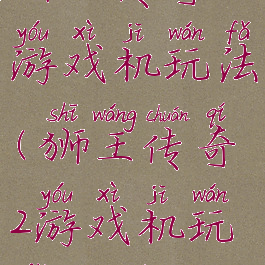 yóu xì jī wán fǎ
游戏机玩法
shī wáng chuán qí
(狮王传奇
yóu xì jī wán
2游戏机玩